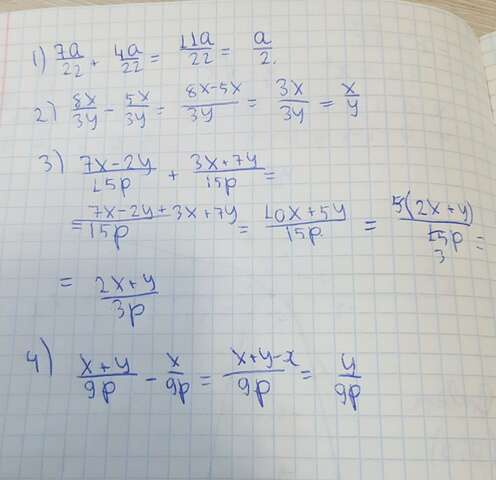 1) 7a/22 + 4a/22 = 11a/22 = a/2.
2) 8x/3y - 5x/3y = 8x-5x/3y = 3x/3y = x/y
3) 7x-2y/15p + 3x+7y/15p =
= 7x-2y+3x+7y/15p = 10x+5y/15p. = 5(2x+y)/15p 3 =
= 2x+y/3p
4) x+y/9p - x/9p = x+y-x/9p = y/9p